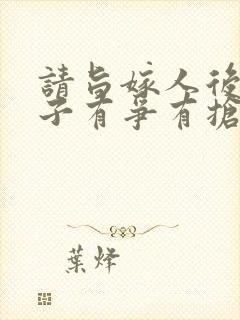 請旨嫁人後
子有爭有搶
葉烽